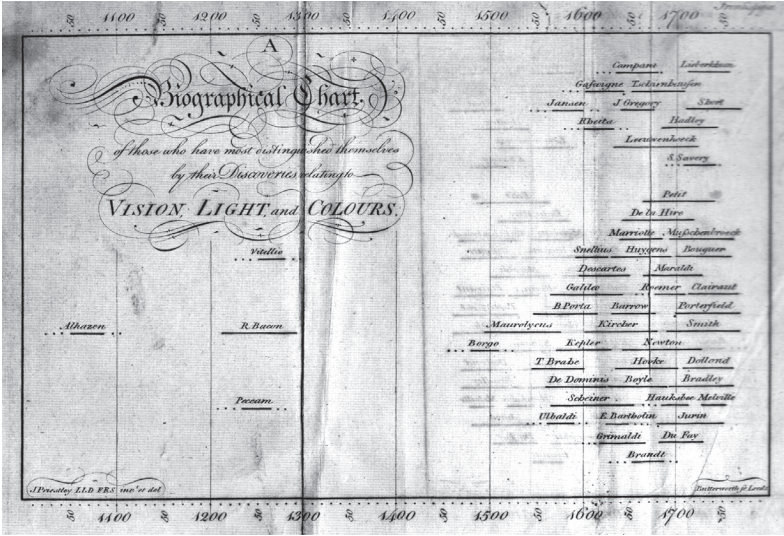 50 1100 50 1200 50 1300 50 1400 50 1500 50 1600 50 1700 50
A
Biographical Chart.
of those who have most distinguished themselves
by their Discoveries relating to
VISION, LIGHT, and COLOURS.
Campani Lieberkhun
Gascoigne Tschirnhausen
Jansen J Gregory Short
Rheita Hadley
Leeuwenhoek
S. Savery
Petit
De la Hire
Marriotte Musschenbroeck
Vitellio Snellius Huygens Bouguer
Descartes Maraldi
Galileo Roemer Clairaut
B.Porta Barrow Porterfield
Alhazen R.Bacon Maurolycus Kircher Smith
Borgo Kepler Newton
T. Brahe Hooke Dollond
De Dominis Boyle Bradley
Peccam Scheiner Hauksbee Melville
Ubaldi E.Bartholin Jurin
Grimaldi Du Fay
Brandt
J Priestley LL.D. FRS inv.t et del
Butterworth sc Leeds
50 1100 50 1200 50 1300 50 1400 50 1500 50 1600 50 1700 50